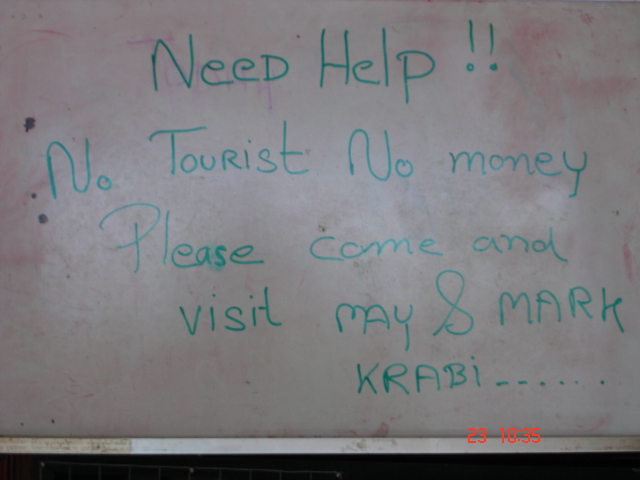 NeeD Help !!
No TOURIST No money
Please come and
visit MAY & MARK
KRABi.......
23 10:35